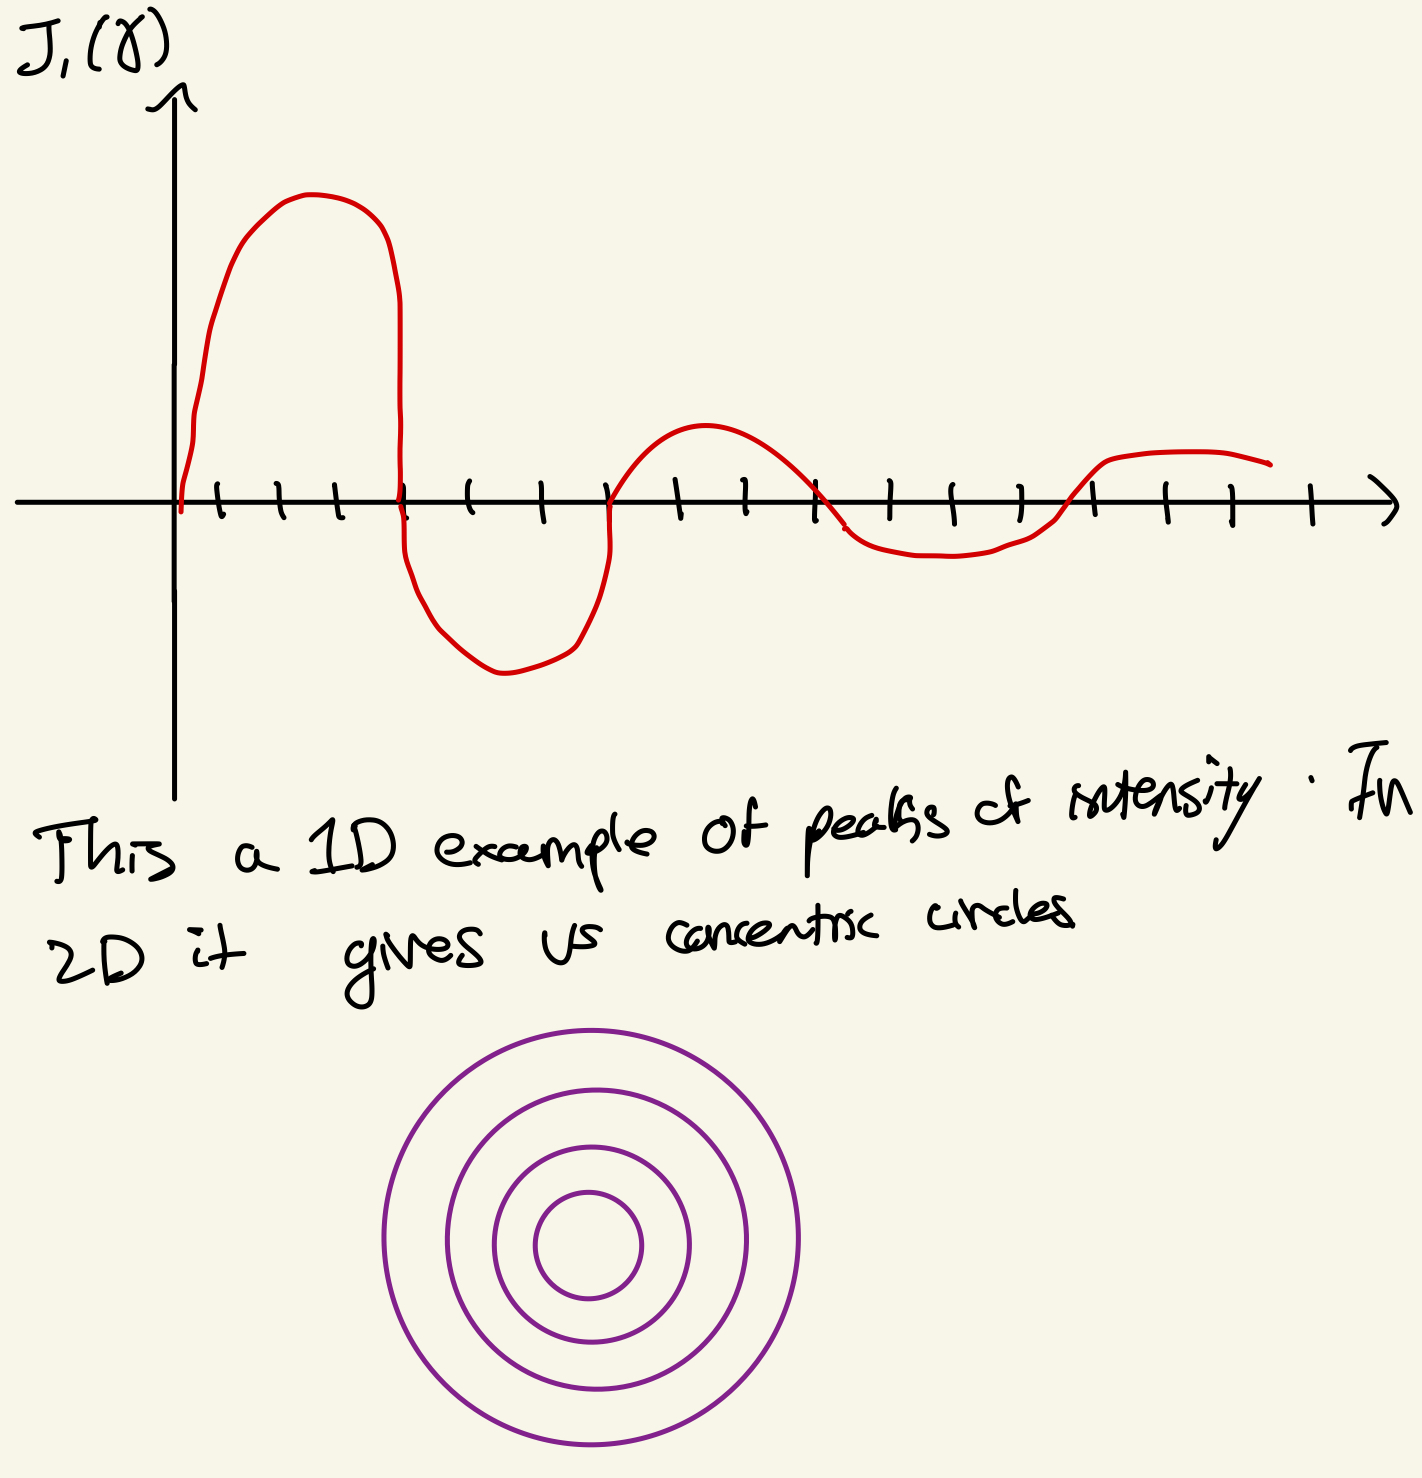 J₁(γ)
This a 1D example of peaks of intensity. In
2D it gives us concentric circles